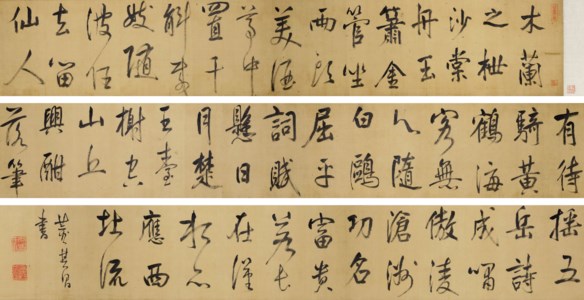 木蘭
之枻
沙棠
舟玉
簫金
管坐
兩頭
美酒
尊中
置千
斛載
妓隨
波任
去留
仙人
有待
騎黃
鶴海
客無
心隨
白鷗
屈平
詞賦
懸日
月楚
王臺
榭空
山丘
興酣
落筆
搖五
岳詩
成嘯
傲凌
滄洲
功名
富貴
若長
在漢
水亦
應西
北流
董其昌
書